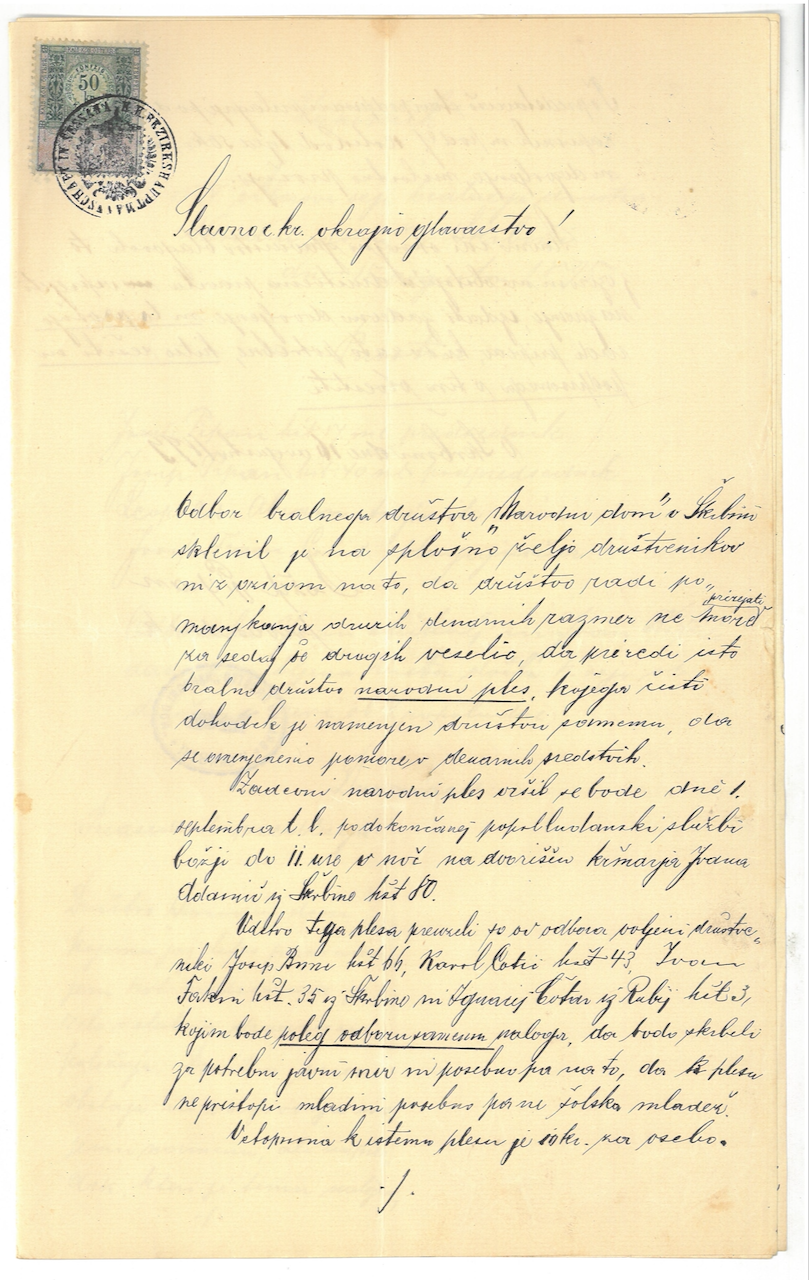 50
K.K. BEZIRKSHAUPTMANNSCHAFT IN SESSANA
Slavno c. kr. okrajno glavarstvo!
Odbor bralnega društva "Narodni dom" v Škrbini
sklenil je na splošno željo društvenikov
ni z ozirom na to, da društvo radi po„
manjkanja druzih denarnih razmer ne more prirejati
za sedaj še drugih veselic, da priredi isto
bralno društvo narodni ples, kojega čisti
dohodek je namenjen društvu samemu, da
se omenjenemu pomore v denarnih sredstvih.
Zadevni narodni ples vršil se bode dne 1.
septembra t. l. po dokončanej popolludanski službi
božji do 11. ure v noč na dvorišču krčmarja Ivana
Adamič iz Škrbine hšt 80.
Vdstvo tega plesa prevzeli so ov odbora voljeni društve„
niki Josip Bune hšt 66, Karol Cotič hšt 43, Ivan
Fakin hšt. 35 iz Škrbine ni Ignacij Čotar iz Rubij hšt 3,
kojim bode poleg odboru samemu naloga, da bodo skrbeli
za potrebni javni mir ni posebno pa na to, da k plesu
ne pristopi mladini posebno pa ne šolska mladež.
Vstopnina k istemu plesu je 10 kr. za osebo.
./.